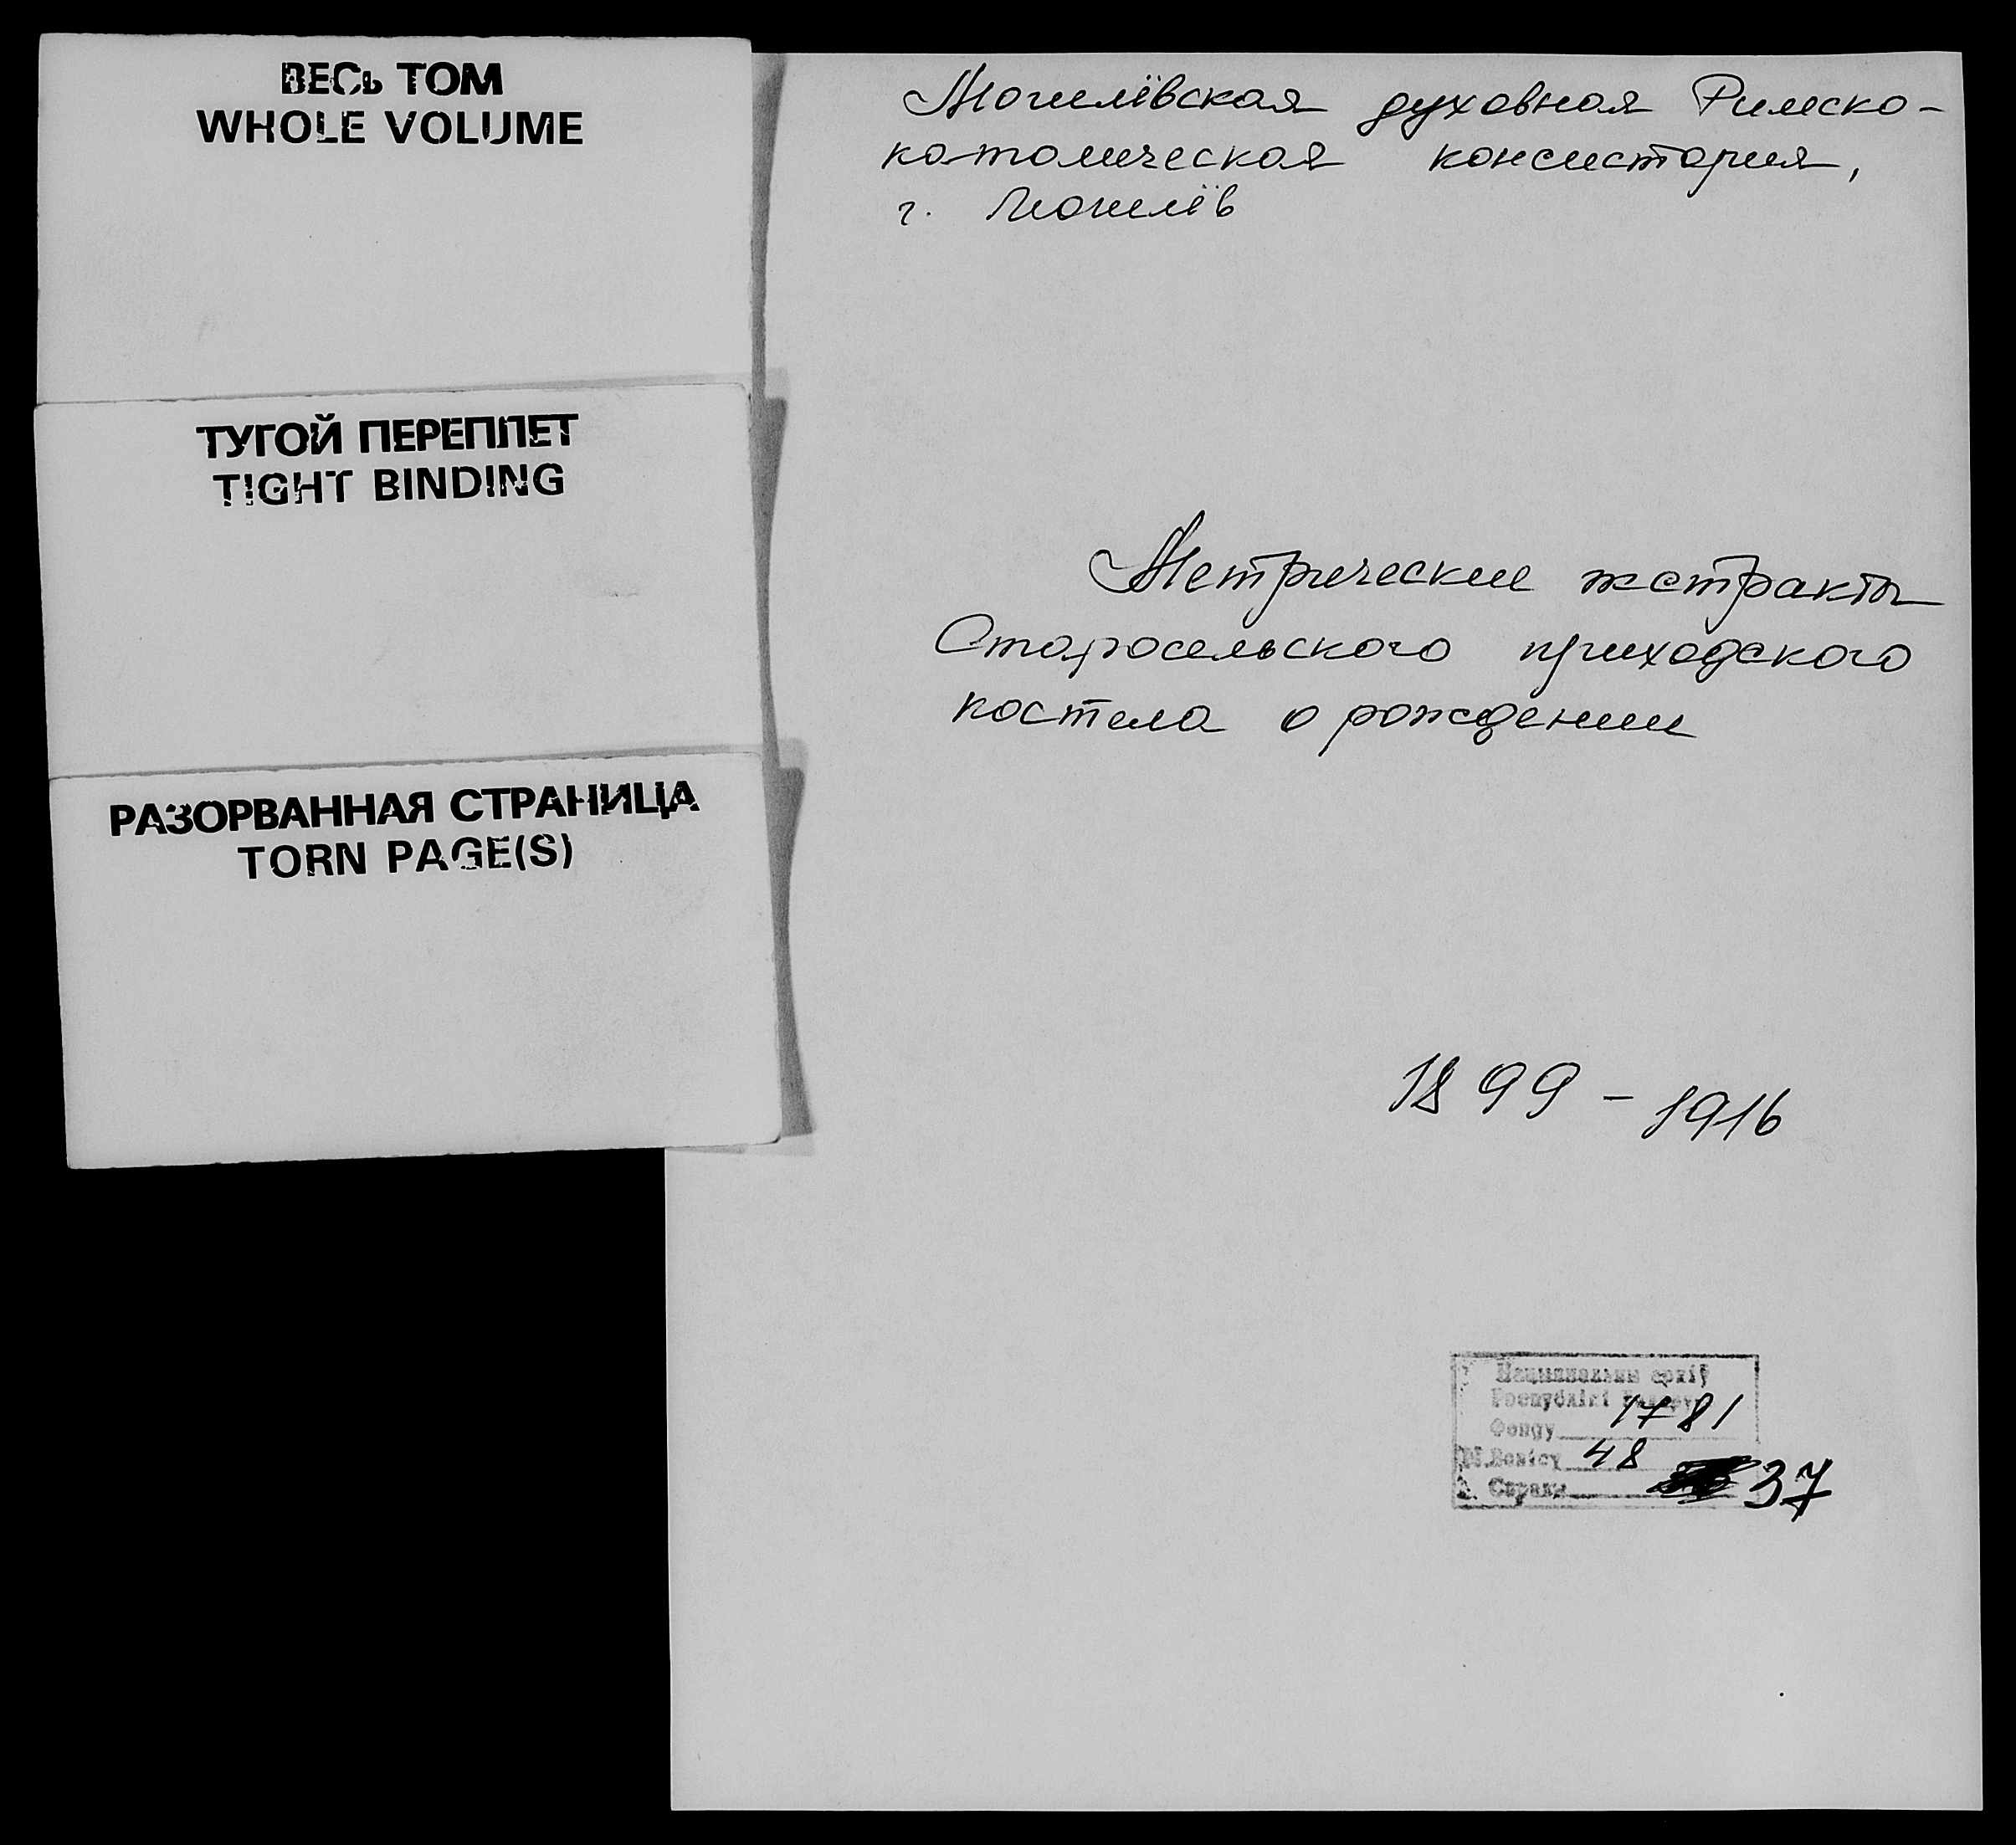 ВЕСЬ ТОМ
WHOLE VOLUME
ТУГОЙ ПЕРЕПЛЕТ
TIGHT BINDING
РАЗОРВАННАЯ СТРАНИЦА
TORN PAGE(S)
Могилёвская духовная Римско-
католическая консистория,
г. Могилёв
Метрические экстракты
Старосельского приходского
костела о рождении
1899 - 1916
Нацыянальны архіў
Рэспублікі
Фонду 1781
Вопісу 48
Справы 37